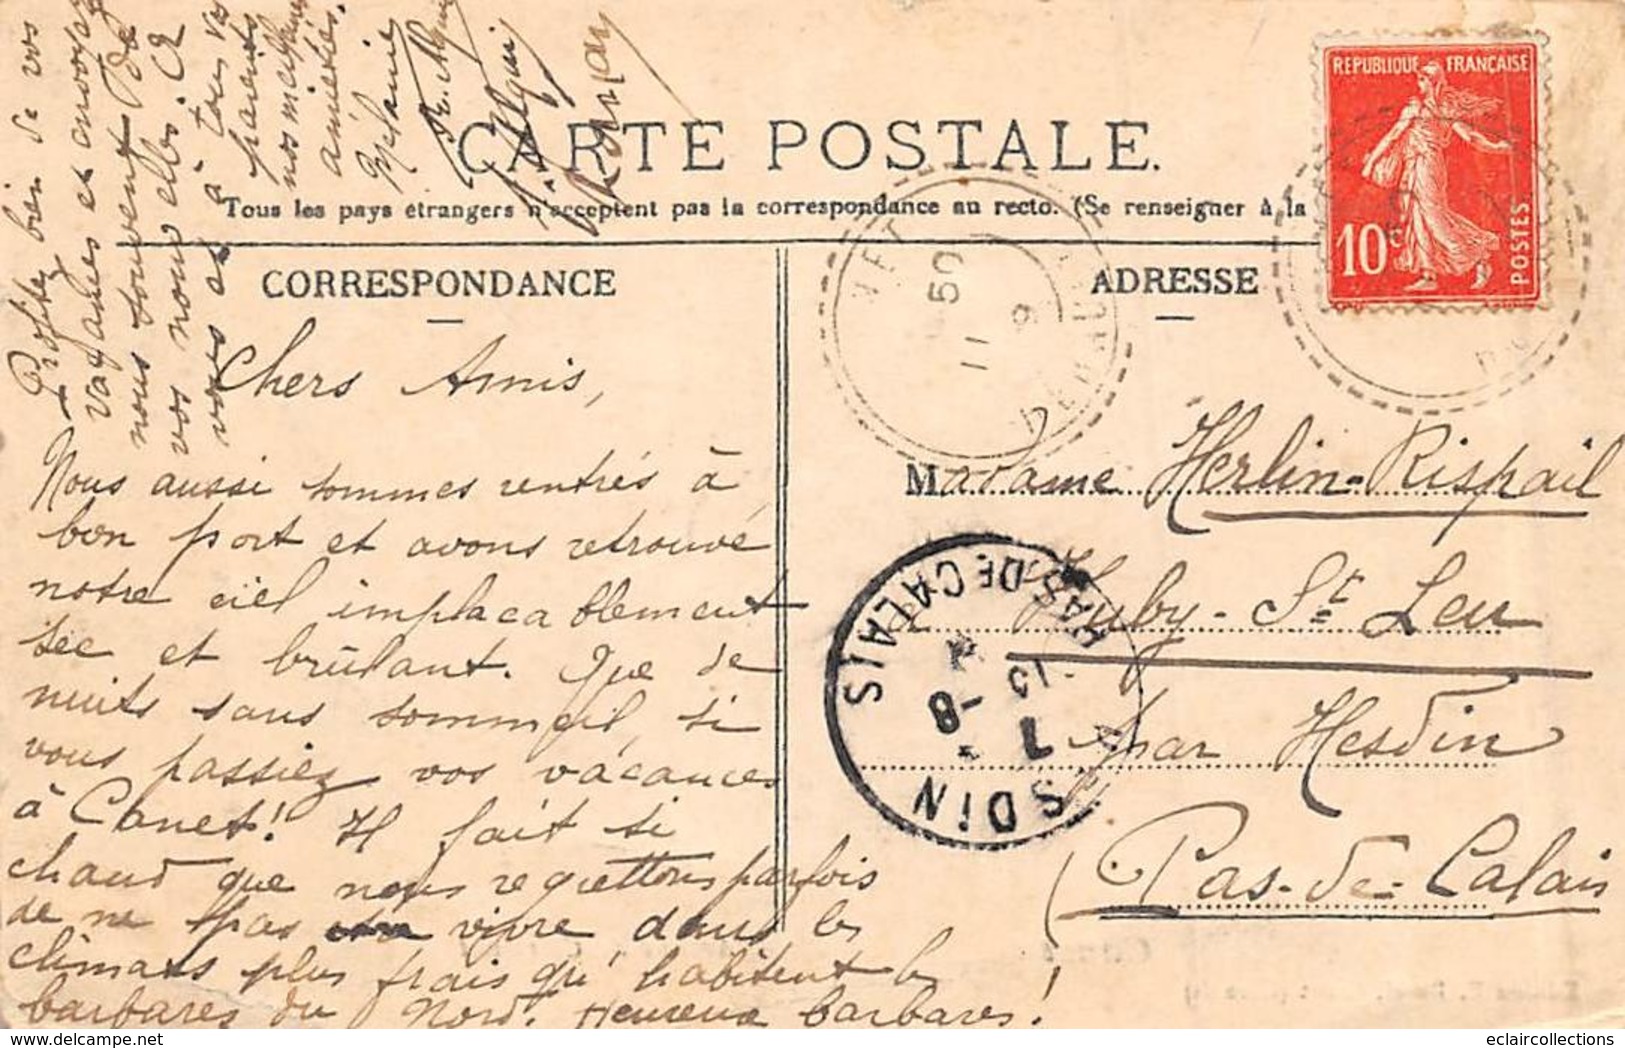 Profitez bien de vos
vacances et envoyez
nous souvent de
vos nouvelles. A
vous et à tous vos
parents
nos meilleures
amitiés.
Mélanie
CARTE POSTALE.
Tous les pays étrangers n'acceptent pas la correspondance au recto. (Se renseigner à la
CORRESPONDANCE
ADRESSE
REPUBLIQUE FRANÇAISE
10c
POSTES
Chers Amis,
Nous aussi sommes rentrés à
bon port et avons retrouvé
notre ciel implacablement
sec et brûlant. Que de
nuits sans sommeil, si
vous passiez vos vacances
à Canet! Il fait si
chaud que nous regrettons parfois
de ne pas vivre dans les
climats plus frais qu'habitent les
barbares du Nord. Heureux barbares!
Madame Herlin-Rispail
Huby-St Leu
par Hesdin
(Pas-de-Calais
SDIN
PAS-DE-CALAIS
7 -8
HERAULT
50
11 9
eclaircollections